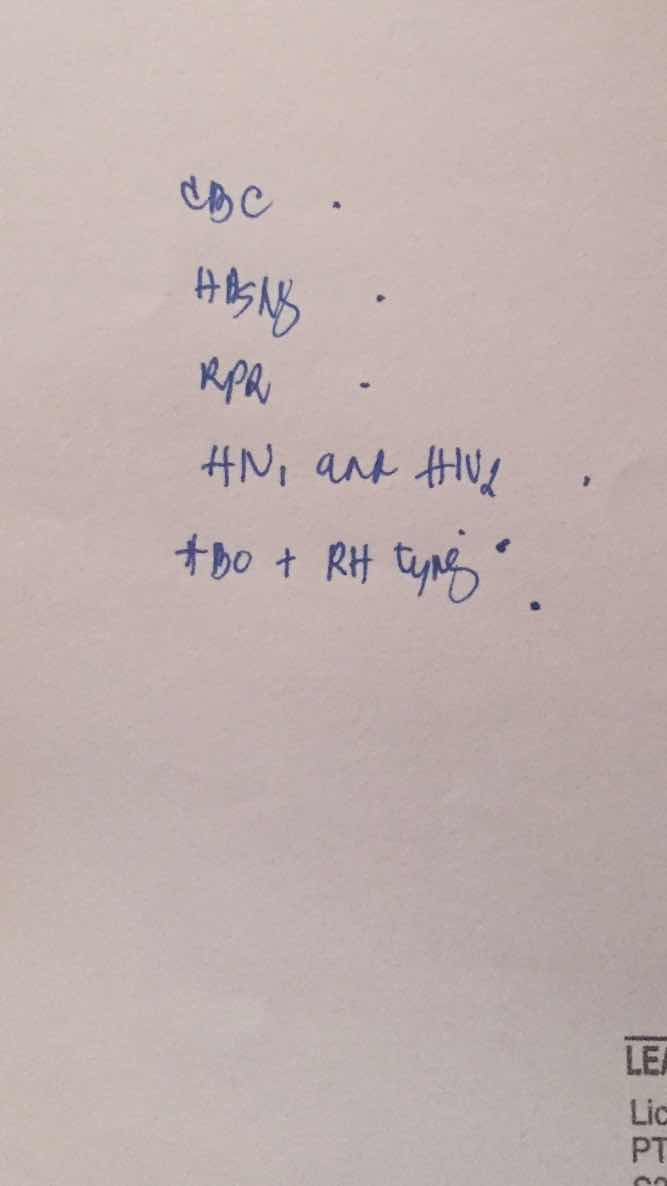 CBC .
HBsAg .
RPR -
HIV1 and HIV2 .
ABO + RH typing .
LEA
Lic
PT